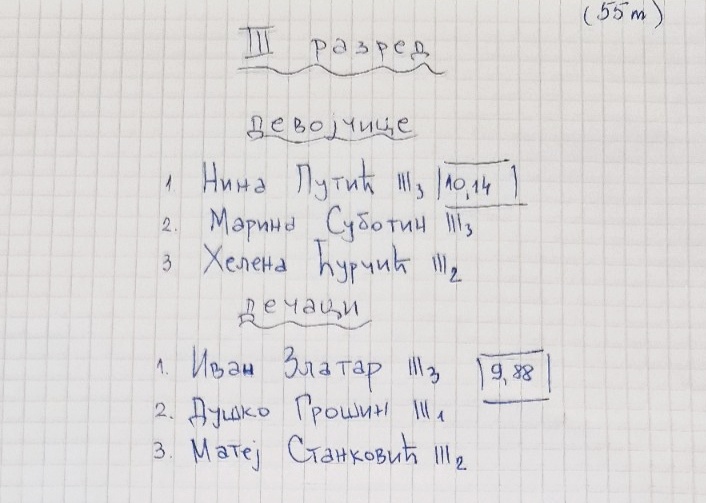 (55m)
III разред
девојчице
1 Нина Путић III3 10,14
2. Марина Суботин III3
3 Хелена Ћурчић III2
дечаци
1. Иван Златар III3 9,88
2. Душко Грошин III1
3. Матеј Станковић III2